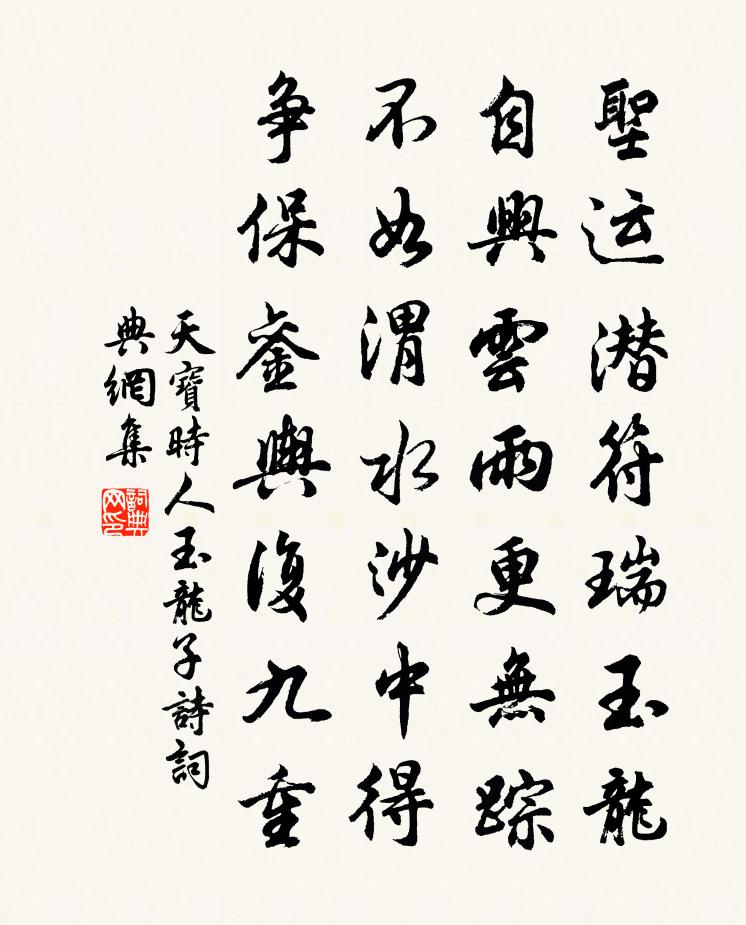 聖运潜符瑞玉龍
自興雲雨更無踪
不如渭水沙中得
争保鑾輿復九重
天寶時人玉龍子詩詞
典網集
詞典
网印